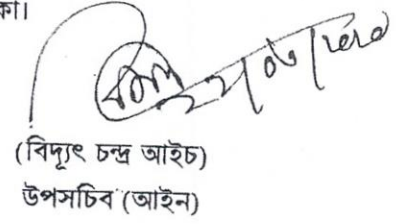 কা।
(বিদ্যুৎ চন্দ্র আইচ)
উপসচিব (আইন)